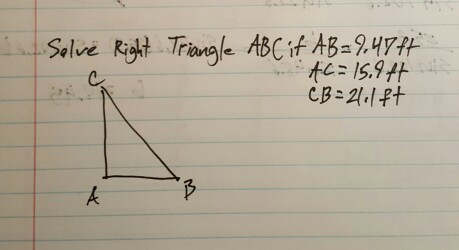 Solve Right Triangle ABC if AB=9.47ft
AC=15.9ft
CB=21.1ft
C
A
B